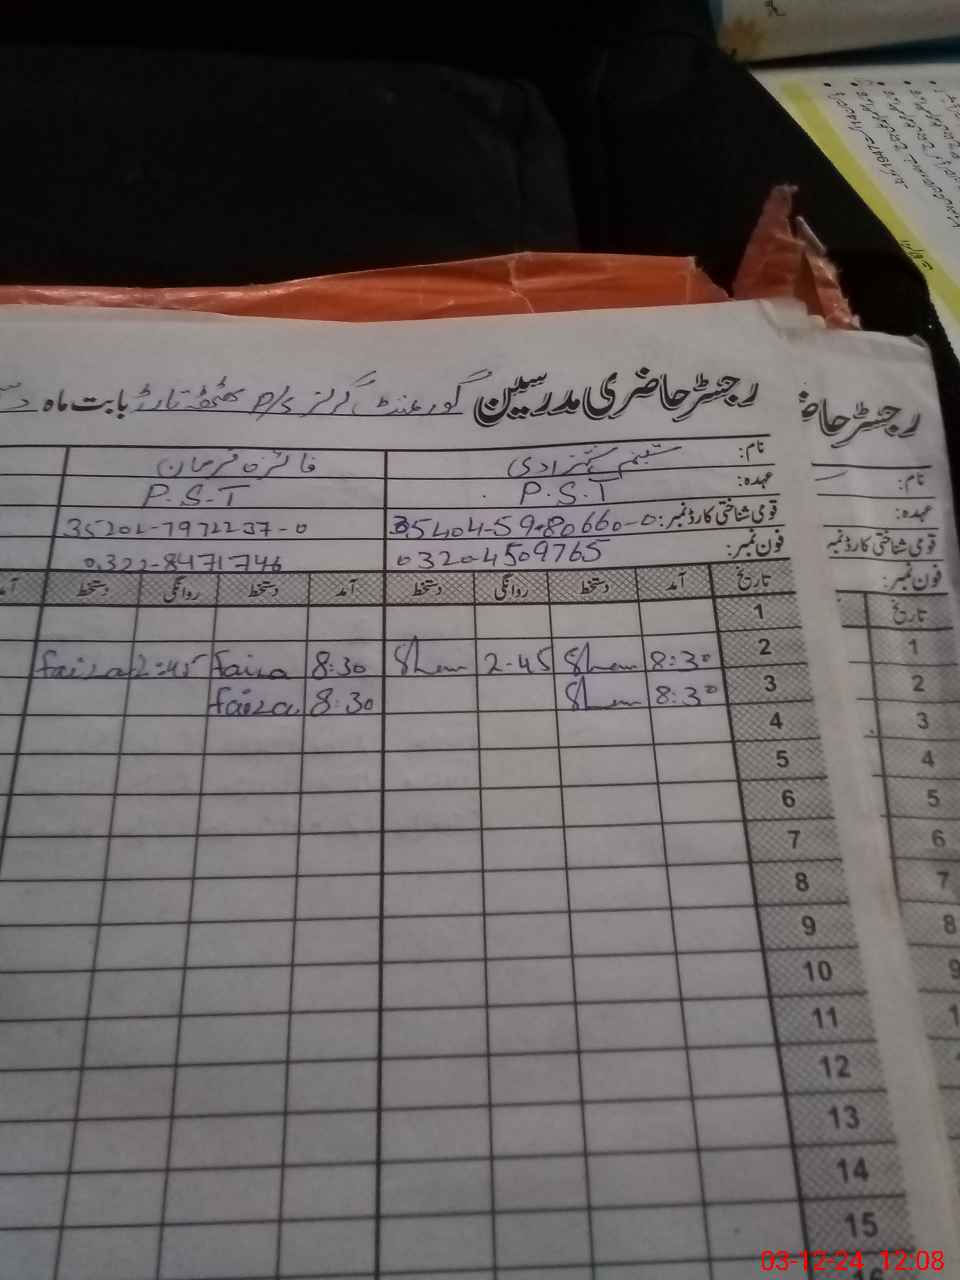 رجسٹر حاضری مدرسین گورنمنٹ گرلز P/S بابت ماہ
نام: شمیم شہزادی فائزہ فرمان
عہدہ: P.S.T P.S.T
قومی شناختی کارڈ نمبر: 35404-5980660-0 35201-7972237-0
فون نمبر: 03204509765 0322-8471746
تاریخ آمد دستخط روانگی دستخط آمد دستخط روانگی دستخط آمد
1
2 8:30 Shem 2-45 Shem 8:30 faiza 2:45 faiza
3 8:30 Shem 8:30 faiza
4
5
6
7
8
9
10
11
12
13
14
15
رجسٹر حا
نام:
عہدہ:
قومی شناختی کارڈ نمبر
فون نمبر:
تاریخ
1
2
3
4
5
6
7
8
9
03-12-24 12:08